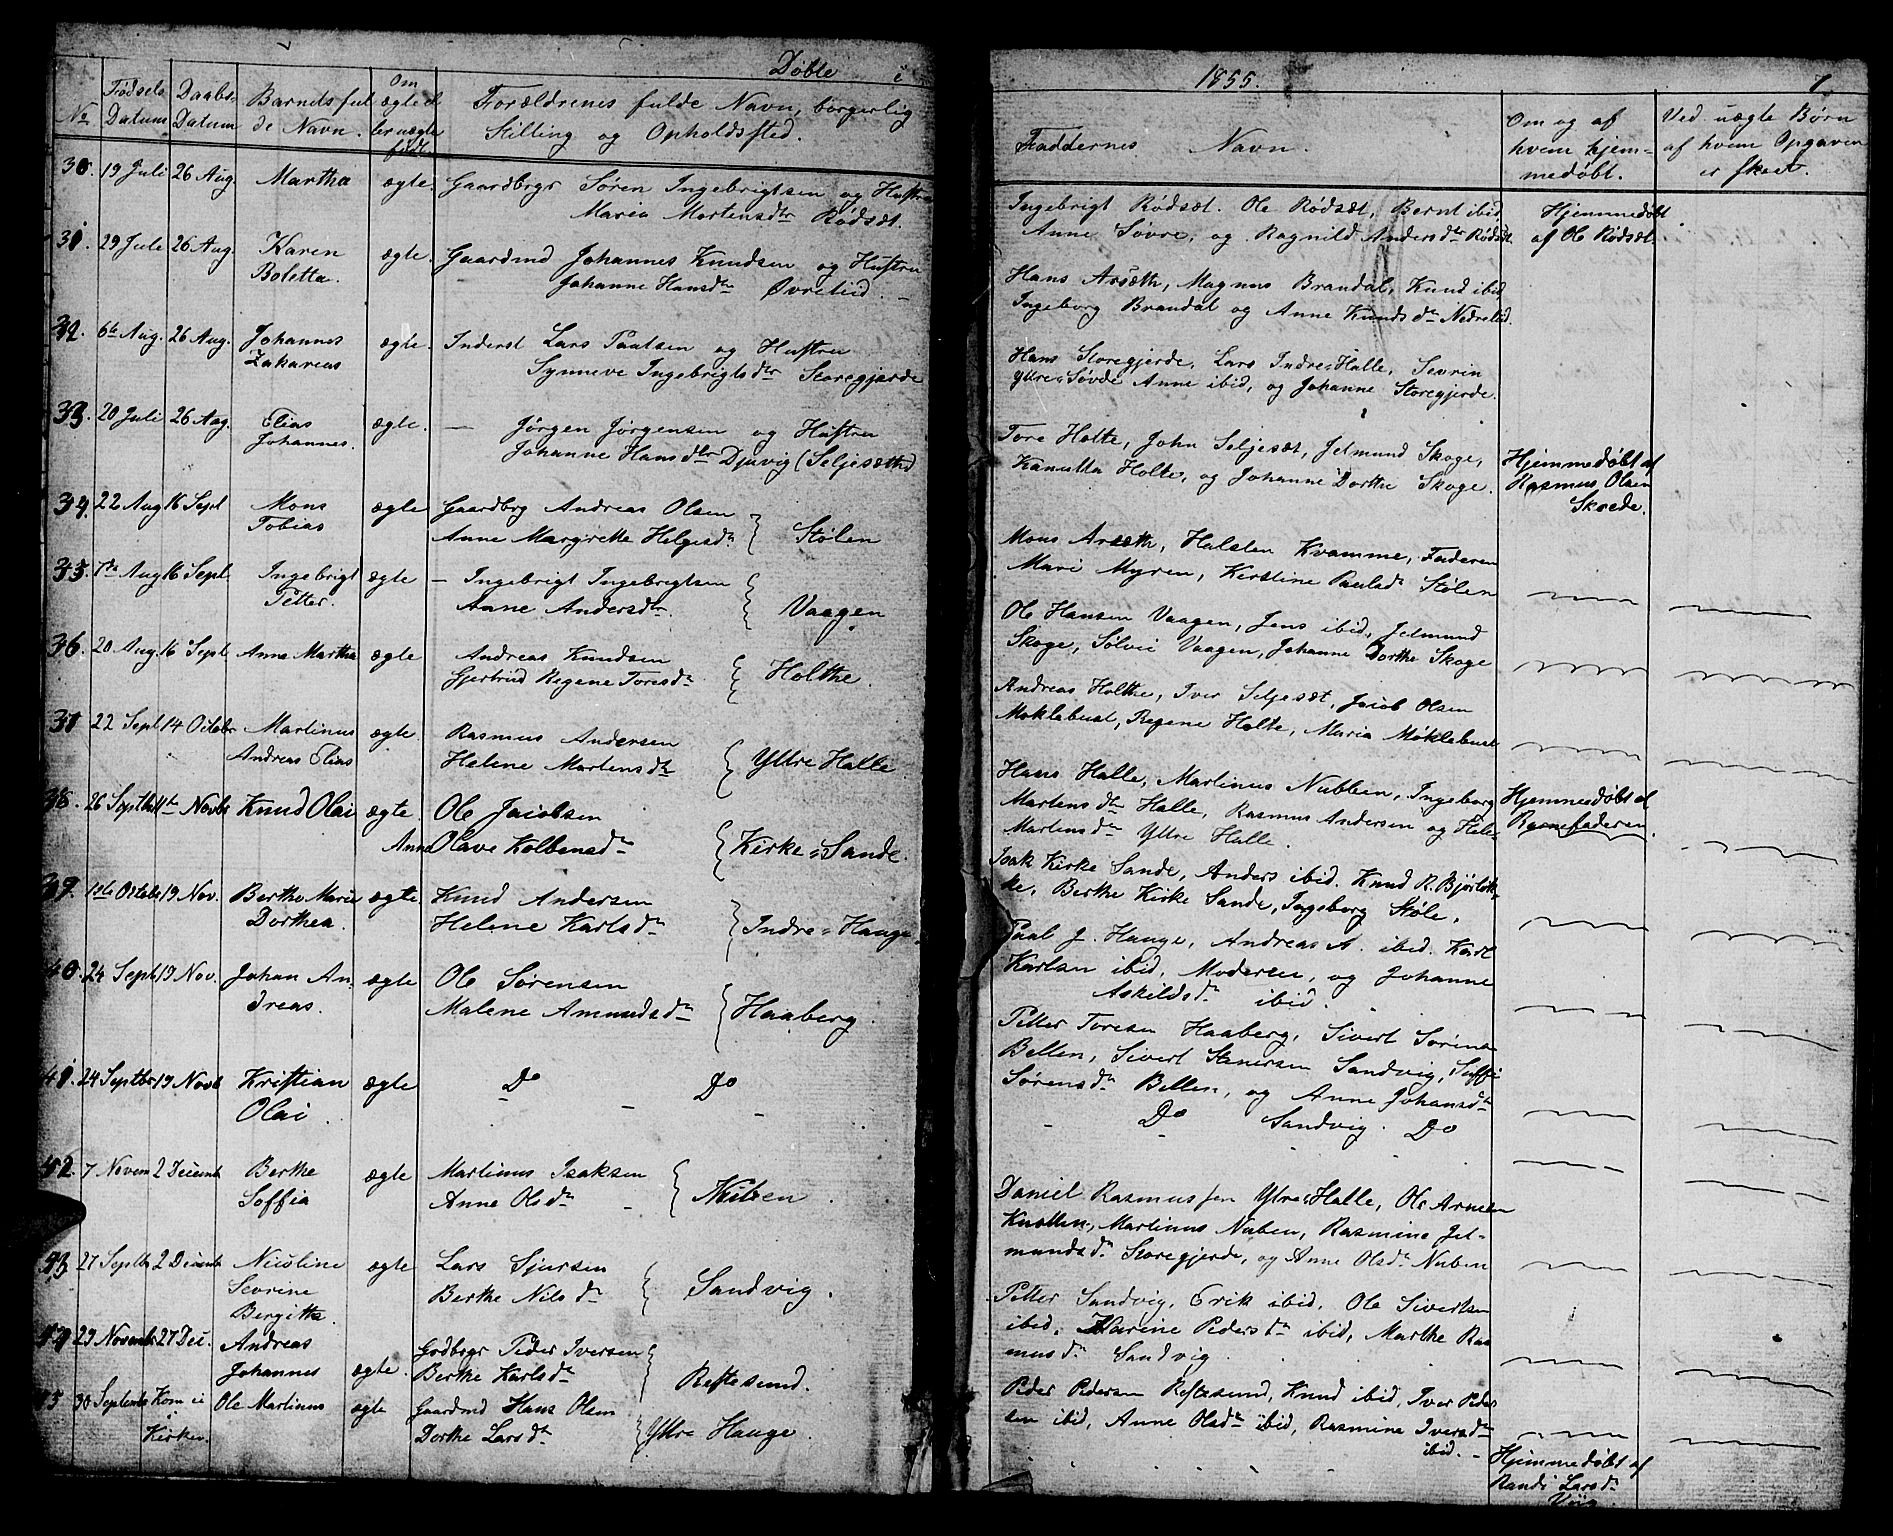 Døbte i
No
Fødsels Datum
Daabs- Datum
Barnets fulde Navn.
Om ægte el ler uægte født
Forældrenes fulde Navn, borgerlig
Stilling og Opholdssted.
30. 19 Juli 26 Aug. Martha ægte. Gaardbrgr Søren Ingebrigtsen og Hustru
Maria Martensdtr Rødsæt.
31. 29 Juli 26 Aug. Karen ægte. Gaardmd Johannes Knudsen og Hustru
Boletta. Johanne Hansdtr Øvrelid. –
32. 6te Aug. 26 Aug. Johannes ægte. Inderst Lars Paulsen og Hustru
Zakarias Synneve Ingebrigtsdtr Storegjerde
33. 20 Juli 26 Aug. Elias ægte. — Jørgen Jørgensen og Hustru
Johannes. Johanne Hansdtr Djuvig (Seljesæth)
34. 22 Aug 16 Sept Mons ægte Gaardbrg Andreas Olsen
Tobias Anne Margrethe Helgesdtr } Stølen
35. 7de Aug 16 Sept Ingebrigt ægte – Ingebrigt Ingebrigtsen
Petter. Anne Andersdtr. } Vaagen
36. 20 Aug 16 Sept Anne Martha ægte Andreas Knudsen
Gjertrud Regene Toresdtr } Holthe.
37 22 Sept 14 Octobr Martinus ægte. Rasmus Andersen
Andreas Elias Helene Martensdtr } Yttre Halle
38. 26 Sept 11te Novbr Knud Olai ægte. Ole Jacobsen
Anne Olave Kolbensdtr } Kirke=Sande.
39. 1ste Octobr 19 Nov. Berthe Marie ægte Knud Andersen
Dorthea. Helene Karlsdtr } Indre=Hauge.
40. 24 Sept 19 Nov. Johan An- ægte Ole Sørensen
dreas. Malene Amundsdtr } Haaberg.
41. 24 Septbr 19 Novb Kristian ægte Do – Do
Olai. –
42. 7 Novem 2 Decemb Berthe ægte Martinus Isaksen
Soffia Anne Olsdtr – }
43 27 Septbr 2 Decemb Nicoline ægte Lars Sjursen
Severine Berthe Nilsdtr } Sandvig.
Bergitta.
44 29 Novembr 27 Dec. Andreas Gdbrgr Peder Iversen
Johannes ægte. Berthe Karlsdtr } Reftesund.
45 30 Septembr Kom i Ole Martinus ægte Gaardmd Hans Olsen
Kirken. Dorthe Larsdtr } Yttre Hauge.
1855. 7.
Faddernes Navn.
Om og af hvem hjem- medøbt.
Ved uægte Børn af hvem Opgaven er skeet.
Ingebrigt Rødsæt. Ole Rødsæt, Bernt ibid, Hjemmedøbt
Anne Sovre, og Ragnild Andersdtr Rødsæt. af Ole Rødsæt.
Hans Arsæth, Magnus Brandal, Knud ibid,
Ingeborg Brandal og Anne Knudsdtr Nedrelid.
Hans Storegjerde, Lars Indre=Halle, Sevrin
Yttre=Søvde Anne ibid, og Johanne Storegjerde.
Tore Holte, John Seljesæt, Jetmund Skoge, Hjemmedøbt af
Kanutta Holte, og Johanne Dorthe Skoge. Rasmus Olsen
Skrede.
Mons Arsæth, Halsten Kvamme, Faderen
Mari Myren, Kerstine Paulsdtr Stølen
Ole Hansen Vaagen, Jens ibid, Jetmund
Skoge, Sølvi Vaagen, Johanne Dorthe Skoge
Andreas Holthe, Iver Seljesæt, Jacob Olsen
Møklebust, Regene Holte, Maria Møklebust
Hans Halle, Martinus Nubben, Ingeborg Hjemmedøbt af
Martensdtr Halle, Rasmus Andersen og Hele- Barnefaderen.
Martensdtr Yttre Halle.
Isak Kirke Sande, Anders ibid. Knud R. Bjørlyk-
ke, Berthe Kirke Sande, Ingeborg Støle.
Paal J. Hauge, Andreas A. ibid. Karl
Karlsen ibid, Moderen, og Johanne
Askildsdtr ibid.
Petter Toresen Haaberg, Sivert Sørens-
Belten, Sivert Sandvig, Soffi
Sørensdtr Belten, og Anne Johansdtr
– Do Sandvig. Do
Daniel Rasmussen Yttre=Halle, Ole Arnesen
Knotten, Martinus Nuben, Rasmine Jet-
mundsdtr Storegjerde, og Anne Olsdtr Nuben
Petter Sandvig, Erik ibid, Ole Sivertsen
ibid, Karine Pedersdtr ibid, Marthe Ras-
musdtr Sandvig.
Peder Pedersen Reftesund, Knud ibid, Iver Peder-
sen ibid, Anne Olsdtr ibid, Rasmine Iversdtr
ibid. –
Hjemmedøbt af
Randi Larsdtr